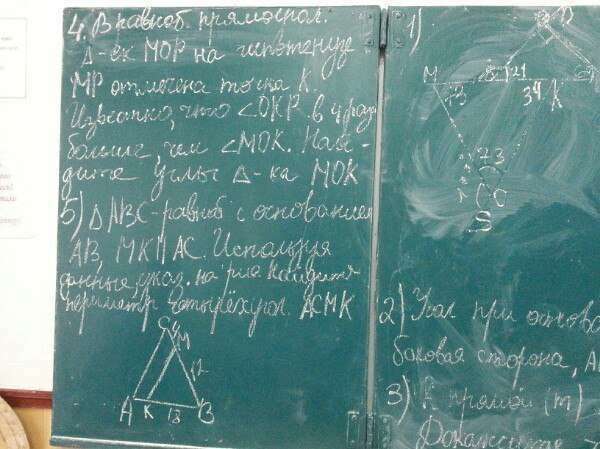 4. В равноб. прямоугол.
Δ-ек МОР на гипотенузе
МР отмечена точка К.
Известно, что ∠ОКР в 4 раза
больше, чем ∠МОК. Най-
дите углы Δ-ка МОК
5) ΔАВС-равноб с основанием
АВ, МК || АС. Используя
данные, указ. на рис найдите
периметр четырёхугол. АСМК
С 4
М
12
А К 13 В
1)
D
М
34 К
2 3
S
2) Угол при основа
боковая сторона, А
3) К прямой (m)
Докажите